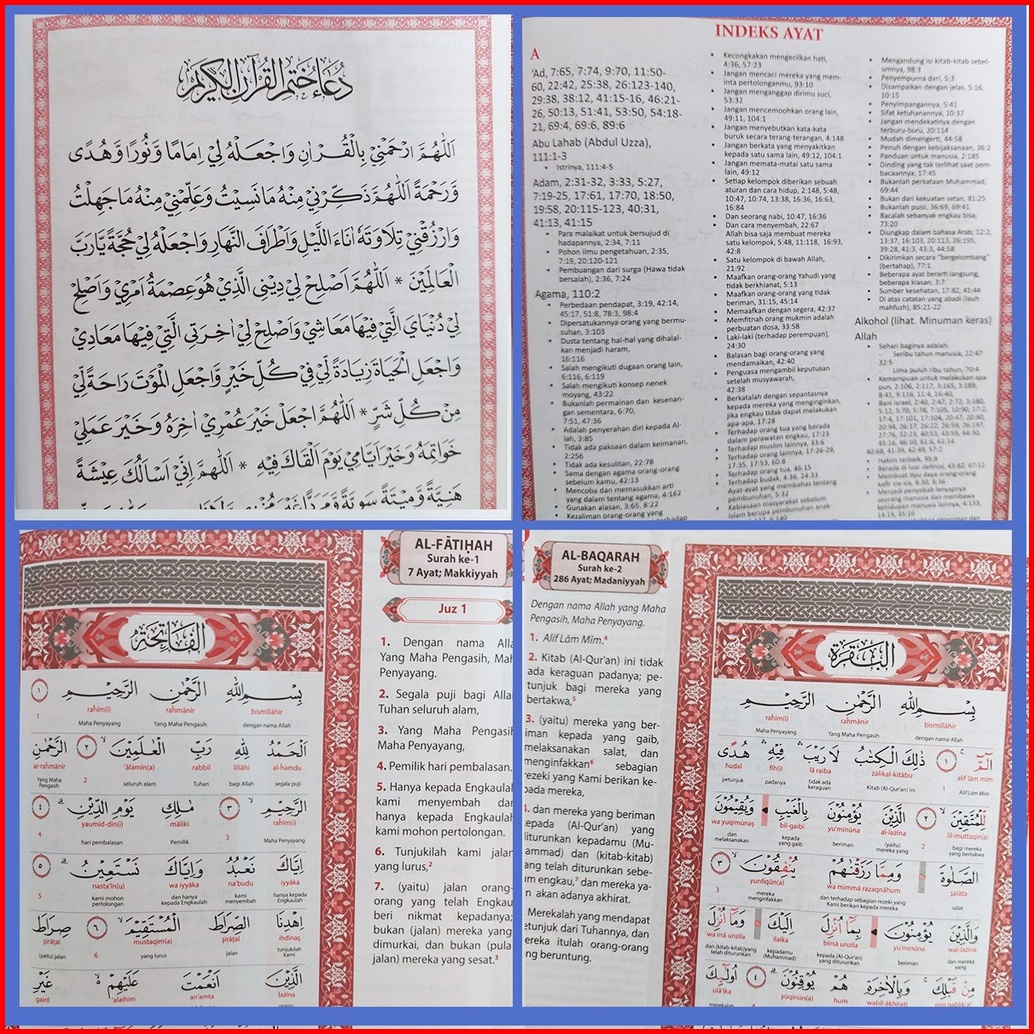 دُعَاءُ خَتْمِ الْقُرْآنِ الْكَرِيْمِ
اَللّٰهُمَّ ارْحَمْنِيْ بِالْقُرْاٰنِ وَاجْعَلْهُ لِيْ اِمَامًا وَّنُوْرًا وَّهُدًى
وَّرَحْمَةً اَللّٰهُمَّ ذَكِّرْنِيْ مِنْهُ مَا نَسِيْتُ وَعَلِّمْنِيْ مِنْهُ مَا جَهِلْتُ
وَارْزُقْنِيْ تِلَاوَتَهٗ اٰنَاءَ اللَّيْلِ وَاَطْرَافَ النَّهَارِ وَاجْعَلْهُ لِيْ حُجَّةً يَّارَبَّ
الْعَالَمِيْنَ * اَللّٰهُمَّ اَصْلِحْ لِيْ دِيْنِى الَّذِيْ هُوَ عِصْمَةُ اَمْرِيْ وَاَصْلِحْ
لِيْ دُنْيَايَ الَّتِيْ فِيْهَا مَعَاشِيْ وَاَصْلِحْ لِيْ اٰخِرَتِى الَّتِيْ فِيْهَا مَعَادِيْ
وَاجْعَلِ الْحَيَاةَ زِيَادَةً لِّيْ فِيْ كُلِّ خَيْرٍ وَّاجْعَلِ الْمَوْتَ رَاحَةً لِّيْ
مِنْ كُلِّ شَرٍّ * اَللّٰهُمَّ اجْعَلْ خَيْرَ عُمْرِيْ اٰخِرَهٗ وَخَيْرَ عَمَلِيْ
خَوَاتِمَهٗ وَخَيْرَ اَيَّامِيْ يَوْمَ اَلْقَاكَ فِيْهِ * اَللّٰهُمَّ اِنِّيْ اَسْاَلُكَ عِيْشَةً
هَنِيَّةً وَّمِيْتَةً سَوِيَّةً وَّمَرَدًّا غَيْرَ
INDEKS AYAT
A
'Ad, 7:65, 7:74, 9:70, 11:50-
60, 22:42, 25:38, 26:123-140,
29:38, 38:12, 41:15-16, 46:21-
26, 50:13, 51:41, 53:50, 54:18-
21, 69:4, 69:6, 89:6
Abu Lahab (Abdul Uzza),
111:1-3
• Istrinya, 111:4-5
Adam, 2:31-32, 3:33, 5:27,
7:19-25, 17:61, 17:70, 18:50,
19:58, 20:115-123, 40:31,
41:13, 41:15
• Para malaikat untuk bersujud di
hadapannya, 2:34, 7:11
• Pohon ilmu pengetahuan, 2:35,
7:19, 20:120-121
• Pembuangan dari surga (Hawa tidak
bersalah), 2:36, 7:24
Agama, 110:2
• Perbedaan pendapat, 3:19, 42:14,
45:17, 51:8, 78:3, 98:4
• Dipersatukannya orang yang bermu-
suhan, 3:103
• Dusta tentang hal-hal yang dihalal-
kan menjadi haram,
16:116
• Salah mengikuti dugaan orang lain,
6:116, 6:119
• Salah mengikuti konsep nenek
moyang, 43:22
• Bukanlah permainan dan kesenan-
gan sementara, 6:70,
7:51, 47:36
• Adalah penyerahan diri kepada Al-
lah, 3:85
• Tidak ada paksaan dalam keimanan,
2:256
• Tidak ada kesulitan, 22:78
• Sama dengan agama orang-orang
sebelum kamu, 42:13
• Mencoba dan memasukkan arti
yang dalam tentang agama, 4:162
• Gunakan alasan, 3:65, 8:22
• Kezaliman orang-orang yang
• Kecongkakan mengecilkan hati,
4:36, 57:23
• Jangan mencaci mereka yang mem-
inta pertolonganmu, 93:10
• Jangan menganggap dirimu suci,
53:32
• Jangan mencemoohkan orang lain,
49:11, 104:1
• Jangan menyebutkan kata-kata
buruk secara terang-terangan, 4:148
• Jangan berkata yang menyakitkan
kepada satu sama lain, 49:12, 104:1
• Jangan memata-matai satu sama
lain, 49:12
• Setiap kelompok diberikan sebuah
aturan dan cara hidup, 2:148, 5:48,
10:47, 10:74, 13:38, 16:36, 16:63,
16:84
• Dan seorang nabi, 10:47, 16:36
• Dan cara menyembah, 22:67
Allah bisa saja membuat mereka
satu kelompok, 5:48, 11:118, 16:93,
42:8
• Satu kelompok di bawah Allah,
21:92
• Maafkan orang-orang Yahudi yang
tidak berkhianat, 5:13
• Maafkan orang-orang yang tidak
beriman, 31:15, 45:14
• Memaafkan dengan segera, 42:37
• Memfitnah orang mukmin adalah
perbuatan dosa, 33:58
• Laki-laki (terhadap perempuan),
24:30
• Balasan bagi orang-orang yang
mendamaikan, 42:40
• Penguasa mengambil keputusan
setelah musyawarah,
42:38
• Berkatalah dengan sepantasnya
kepada mereka yang menginginkan,
jika engkau tidak dapat melakukan
apa-apa, 17:28
• Terhadap orang tua yang berada
dalam perawatan engkau, 17:23
• Terhadap muslim lainnya, 33:6
• Terhadap orang lainnya, 17:26-29,
17:35, 17:53, 60:8
• Terhadap orang tua, 46:15
• Terhadap budak, 4:36, 24:33
• Ayat-ayat yang membahas tentang
pembunuhan, 5:32
• Kebiasaan masyarakat sebelum
Islam berupa pembunuhan anak
• Mengandung isi kitab-kitab sebel-
umnya, 98:3
• Penyempurna dari, 5:3
• Disampaikan dengan jelas, 5:16,
10:15
• Penyimpangannya, 5:41
• Sifat ketuhanannya, 10:37
• Jangan mendekatinya dengan
terburu-buru, 20:114
• Mudah dimengerti, 44:58
• Penuh dengan kebijaksanaan, 36:2
• Panduan untuk manusia, 2:185
• Dinding yang tak terlihat saat pem-
bacaannya, 17:45
• Bukanlah perkataan Muhammad,
69:44
• Bukan dari kekuatan setan, 81:25
• Bukanlah puisi, 36:69, 69:41
• Bacalah sebanyak engkau bisa,
73:20
• Diungkap dalam bahasa Arab, 12:2,
13:37, 16:103, 20:113, 26:195,
39:28, 41:3, 43:3, 44:58
• Dikirimkan secara "bergelombang"
(bertahap), 77:1
• Beberapa ayat berarti langsung,
beberapa kiasan, 3:7
• Sumber kesehatan, 17:82, 41:44
• Di atas catatan yang abadi (lauh
mahfuzh), 85:21-22
Alkohol (lihat. Minuman keras)
Allah
• Sehari baginya adalah:
- Seribu tahun manusia, 22:47
32:5
- Lima puluh ribu tahun, 70:4
• Kemampuan untuk melakukan apa
pun, 2:106, 2:117, 3:165, 3:189,
8:41, 9:116, 11:4, 16:40,
• Hakim terbaik, 95:8
• Berada di luar definisi, 43:82, 67:12
• Membuat tipu daya orang-orang
kafir sia-sia, 8:30, 8:36
• Menjadi penyebab lenyapnya
seorang manusia dan membawa
kehidupan manusia lainnya, 4:133,
14:19, 35:16
AL-FĀTIḤAH
Surah ke-1
7 Ayat; Makkiyyah
Juz 1
الفَاتِحَة
بِسْمِ اللّٰهِ الرَّحْمٰنِ الرَّحِيْمِ ١
bismillāhir raḥmānir raḥīm(i) 1
dengan nama Allah Yang Maha Pengasih Maha Penyayang
اَلْحَمْدُ لِلّٰهِ رَبِّ الْعٰلَمِيْنَ ٢ الرَّحْمٰنِ
al-ḥamdu lillāhi rabbil 'ālamīn(a) ar-raḥmānir
segala puji bagi Allah Tuhan seluruh alam 2 Yang Maha Pengasih
الرَّحِيْمِ ٣ مٰلِكِ يَوْمِ الدِّيْنِ ٤
raḥīm(i) māliki yaumid-dīn(i)
Maha Penyayang 3 Pemilik hari pembalasan 4
اِيَّاكَ نَعْبُدُ وَاِيَّاكَ نَسْتَعِيْنُ ٥
iyyāka na'budu wa iyyāka nasta'īn(u)
hanya kepada Engkaulah kami menyembah dan hanya kepada Engkaulah kami mohon pertolongan 5
اِهْدِنَا الصِّرَاطَ الْمُسْتَقِيْمَ ٦ صِرَاطَ
ihdinaṣ ṣirāṭal mustaqīm(a) ṣirāṭal
tunjukilah kami jalan yang lurus 6 (yaitu) jalan
الَّذِيْنَ اَنْعَمْتَ عَلَيْهِمْ غَيْرِ
lażīna an'amta 'alaihim gairil
1. Dengan nama Alla
Yang Maha Pengasih, Mah
Penyayang.
2. Segala puji bagi Alla
Tuhan seluruh alam,
3. Yang Maha Pengasih
Maha Penyayang,
4. Pemilik hari pembalasan.
5. Hanya kepada Engkaulah
kami menyembah dan
hanya kepada Engkaulah
kami mohon pertolongan.
6. Tunjukilah kami jalan
yang lurus,²
7. (yaitu) jalan orang-
orang yang telah Engkau
beri nikmat kepadanya;
bukan (jalan) mereka yang
dimurkai, dan bukan (pula
jalan) mereka yang sesat.³
AL-BAQARAH
Surah ke-2
286 Ayat; Madaniyyah
Dengan nama Allah yang Maha
Pengasih, Maha Penyayang.
1. Alif Lām Mīm.⁴
2. Kitab (Al-Qur'an) ini tidak
ada keraguan padanya; pe-
tunjuk bagi mereka yang
bertakwa,⁵
3. (yaitu) mereka yang ber-
iman kepada yang gaib,
melaksanakan salat, dan
menginfakkan⁶ sebagian
rezeki yang Kami berikan ke-
pada mereka,
4. dan mereka yang beriman
kepada (Al-Qur'an) yang
diturunkan kepadamu (Mu-
ammad) dan (kitab-kitab)
ang telah diturunkan sebe-
m engkau,⁷ dan mereka ya-
n akan adanya akhirat.
Merekalah yang mendapat
etunjuk dari Tuhannya, dan
ereka itulah orang-orang
ng beruntung.
البَقَرَة
بِسْمِ اللّٰهِ الرَّحْمٰنِ الرَّحِيْمِ
bismillāhir raḥmānir raḥīm(i)
dengan nama Allah Yang Maha Pengasih Maha Penyayang
الۤمّۤ ١ ذٰلِكَ الْكِتٰبُ لَا رَيْبَ فِيْهِ هُدًى
alif lām mīm żālikal-kitābu lā raiba fīh(i) hudal
Alif Lām Mīm 1 Kitab (Al-Qur'an) ini tidak ada keraguan padanya petunjuk
لِّلْمُتَّقِيْنَ ٢ الَّذِيْنَ يُؤْمِنُوْنَ بِالْغَيْبِ وَيُقِيْمُوْنَ
lil-muttaqīn(a) al-lażīna yu'minūna bil-gaibi wa yuqīmūnaṣ
bagi mereka yang bertakwa 2 (yaitu) mereka yang beriman kepada yang gaib dan melaksanakan
الصَّلٰوةَ وَمِمَّا رَزَقْنٰهُمْ يُنْفِقُوْنَ ٣
ṣalāta wa mimmā razaqnāhum yunfiqūn(a)
salat dan terhadap sebagian rezeki yang Kami berikan kepada mereka menginfakkan 3
وَالَّذِيْنَ يُؤْمِنُوْنَ بِمَآ اُنْزِلَ اِلَيْكَ وَمَآ اُنْزِلَ
wal-lażīna yu'minūna bimā unzila ilaika wa mā unzila
dan mereka yang beriman kepada (Al-Qur'an) yang diturunkan kepadamu (Muhammad) dan (kitab-kitab) yang telah diturunkan
مِنْ قَبْلِكَ وَبِالْاٰخِرَةِ هُمْ يُوْقِنُوْنَ ٤ اُولٰۤىِٕكَ
min qablik(a) wabil-ākhirati hum yūqinūn(a) ulā'ika